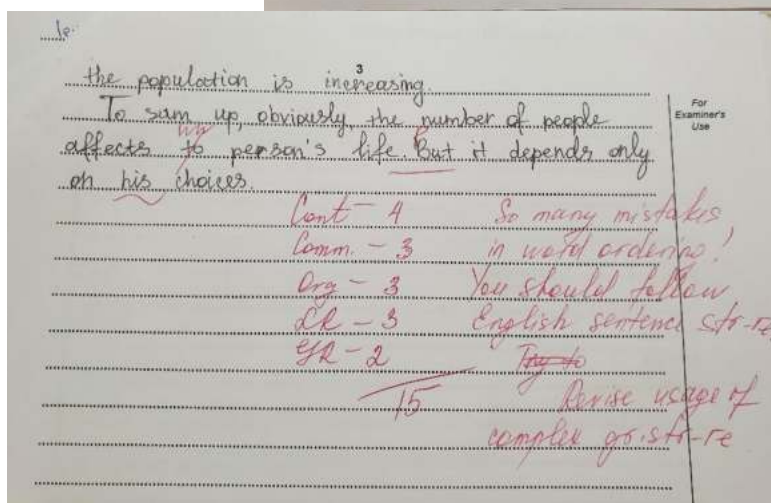 1p.
3
the population is increasing.
To sum up, obviously, the number of people
For
Examiner's
Use
affects to person's life. But it depends only
on his choices.
Cont - 4
Comm. - 3
Org - 3
LR - 3
GR - 2
15
So many mistakes
in word ordering!
You should follow
English sentence str-re
Try to
Revise usage of
complex gr. str-re